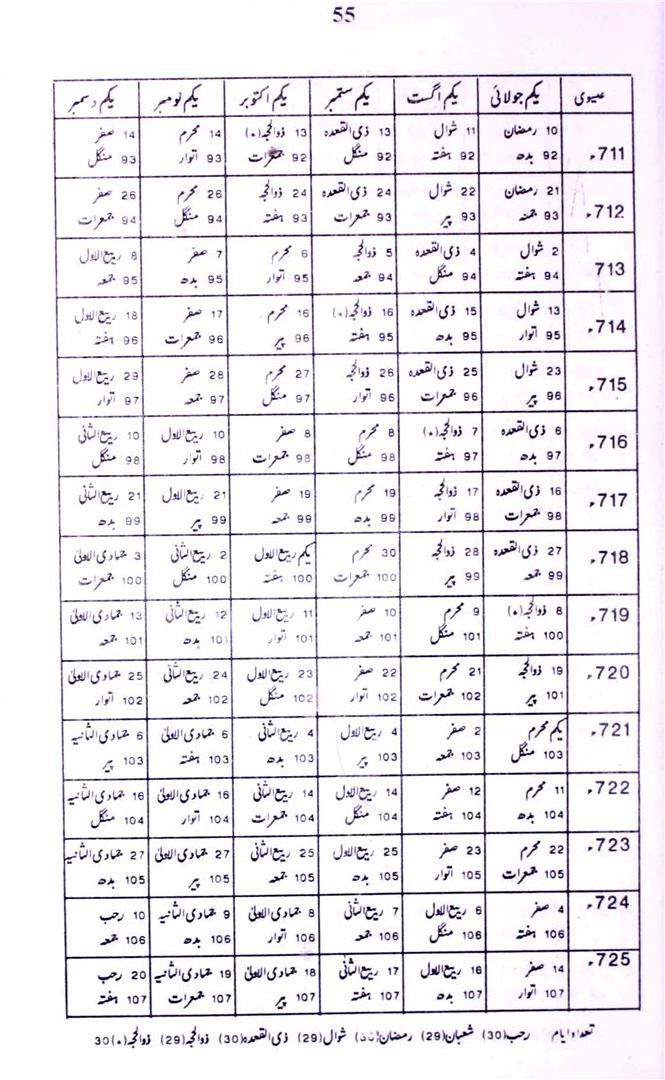 55
عیسوی یکم جولائی یکم اگست یکم ستمبر یکم اکتوبر یکم نومبر یکم دسمبر
711ء 10 رمضان 11 شوال 13 ذی القعدہ 13 ذوالحجہ(٭) 14 محرم 14 صفر
92 بدھ 92 ہفتہ 92 منگل 92 جمعرات 93 اتوار 93 منگل
712ء 21 رمضان 22 شوال 24 ذی القعدہ 24 ذوالحجہ 26 محرم 26 صفر
93 جمعہ 93 پیر 93 جمعرات 93 ہفتہ 94 منگل 94 جمعرات
713 2 شوال 4 ذی القعدہ 5 ذوالحجہ 6 محرم 7 صفر 8 ربیع الاول
94 ہفتہ 94 منگل 94 جمعہ 95 اتوار 95 بدھ 95 جمعہ
714ء 13 شوال 15 ذی القعدہ 16 ذوالحجہ(٭) 16 محرم 17 صفر 18 ربیع الاول
95 اتوار 95 بدھ 95 ہفتہ 96 پیر 96 جمعرات 96 ہفتہ
715ء 23 شوال 25 ذی القعدہ 26 ذوالحجہ 27 محرم 28 صفر 29 ربیع الاول
96 پیر 96 جمعرات 96 اتوار 97 منگل 97 جمعہ 97 اتوار
716ء 6 ذی القعدہ 7 ذوالحجہ(٭) 8 محرم 8 صفر 10 ربیع الاول 10 ربیع الثانی
97 بدھ 97 ہفتہ 98 منگل 98 جمعرات 98 اتوار 98 منگل
717ء 16 ذی القعدہ 17 ذوالحجہ 19 محرم 19 صفر 21 ربیع الاول 21 ربیع الثانی
98 جمعرات 98 اتوار 99 بدھ 99 جمعہ 99 پیر 99 بدھ
718ء 27 ذی القعدہ 28 ذوالحجہ 30 محرم یکم ربیع الاول 2 ربیع الثانی 3 جمادی الاولیٰ
99 جمعہ 99 پیر 100 جمعرات 100 ہفتہ 100 منگل 100 جمعرات
719ء 8 ذوالحجہ(٭) 9 محرم 10 صفر 11 ربیع الاول 12 ربیع الثانی 13 جمادی الاولیٰ
100 ہفتہ 101 منگل 101 جمعہ 101 اتوار 101 بدھ 101 جمعہ
720ء 19 ذوالحجہ 21 محرم 22 صفر 23 ربیع الاول 24 ربیع الثانی 25 جمادی الاولیٰ
101 پیر 102 جمعرات 102 اتوار 102 منگل 102 جمعہ 102 اتوار
721ء یکم محرم 2 صفر 4 ربیع الاول 4 ربیع الثانی 6 جمادی الاولیٰ 6 جمادی الثانیہ
103 منگل 103 جمعہ 103 پیر 103 بدھ 103 ہفتہ 103 پیر
722ء 11 محرم 12 صفر 14 ربیع الاول 14 ربیع الثانی 16 جمادی الاولیٰ 16 جمادی الثانیہ
104 بدھ 104 ہفتہ 104 منگل 104 جمعرات 104 اتوار 104 منگل
723ء 22 محرم 23 صفر 25 ربیع الاول 25 ربیع الثانی 27 جمادی الاولیٰ 27 جمادی الثانیہ
105 جمعرات 105 اتوار 105 بدھ 105 جمعہ 105 پیر 105 بدھ
724ء 4 صفر 6 ربیع الاول 7 ربیع الثانی 8 جمادی الاولیٰ 9 جمادی الثانیہ 10 رجب
106 ہفتہ 106 منگل 106 جمعہ 106 اتوار 106 بدھ 106 جمعہ
725ء 14 صفر 16 ربیع الاول 17 ربیع الثانی 18 جمادی الاولیٰ 19 جمادی الثانیہ 20 رجب
107 اتوار 107 بدھ 107 ہفتہ 107 پیر 107 جمعرات 107 ہفتہ
تعداد ایام رجب(30) شعبان(29) رمضان(30) شوال(29) ذی القعدہ(30) ذوالحجہ(29) ذوالحجہ(٭)30